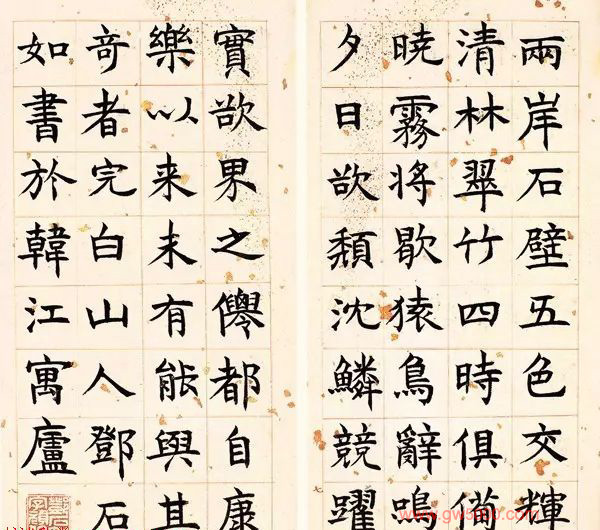 兩岸石壁五色交輝
清林翠竹四時俱備
曉霧將歇猿鳥辭鳴
夕日欲頹沈鱗競躍
實欲界之僊都自康
樂以来未有能與其
奇者完白山人鄧石
如書於韓江寓廬